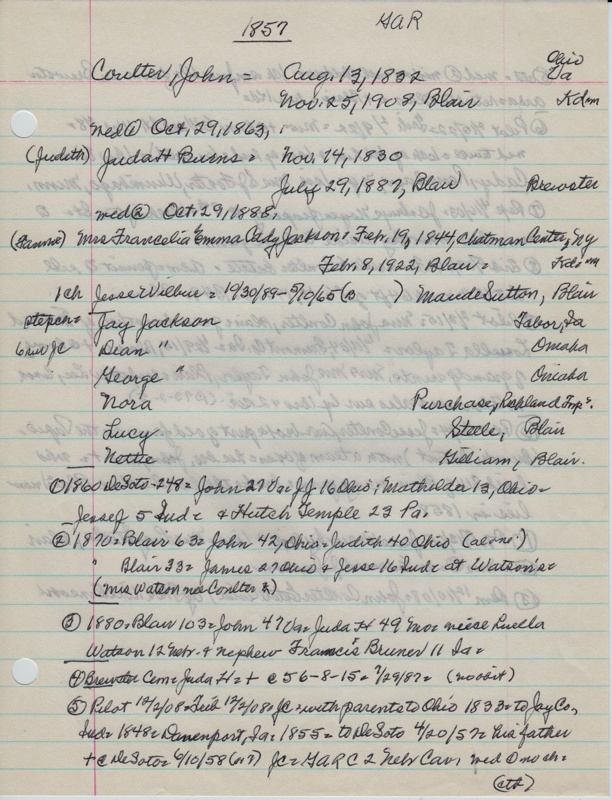 1857 GAR
Coulter, John = Aug. 13, 1832 Ohio Va
Nov. 25, 1908, Blair Kdm
med @ Oct, 29, 1863,
(Judith) Juda H Burns = Nov. 14, 1830
July 29, 1887, Blair Brewster
med @ Oct. 29, 1888,
Mrs Francelia Emma Cady Jackson = Feb. 19, 1844, Chatman Center, Ny
Feb. 8, 1922, Blair = Kdm
1 ch Jesse Wilbur = 10/30/89 - 5/10/65 ( ) Maude Sutton, Blair
stepch = Jay Jackson Tabor, Ia
6 Dian " Omaha
George " Omaha
Nora Purchase, Richland Twp.
Lucy Steele, Blair
Nettie Gilliam, Blair.
① 1860 DeSoto - 248 = John 27 Va = JJ 16 Ohio; Mathilda 13, Ohio =
Jesse J 5 Ind = & Hutch Temple 23 Pa.
② 1870 = Blair 63 = John 42, Ohio = Judith 40 Ohio
" Blair 33 = James 27 Ohio & Jesse 16 Ind = at Watson's =
(Mrs Watson nee Coulter)
③ 1880 = Blair 103 = John 47 Va = Juda H 49 Mo = niece Luella
Watson 12 Nebr. & nephew Francis Bruner 11 Ia =
④ Brewster Cem = Juda H = + @ 56-8-15 = 7/29/87 = (no obit)
⑤ Pilot 12/2/08 = Trib 12/2/08 = JC = with parents to Ohio 1833 = to Jay Co,
Ind = 1848 = Davenport, Ia = 1855 = to DeSoto 4/20/57 = his father
+ @ DeSoto = 6/10/58 JC = GAR C 2 Nebr Cav, med